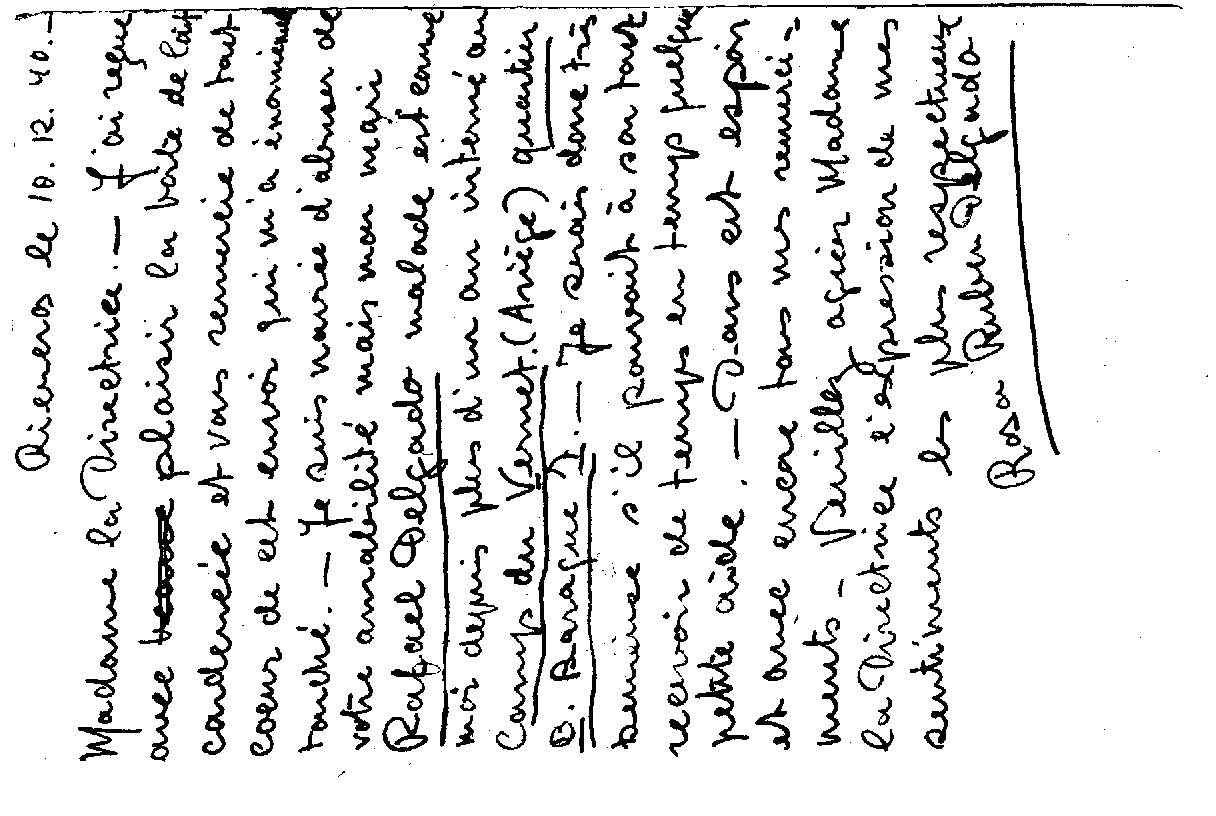 Rieucros le 10.12.40.-
Madame la Directrice.- J'ai reçue
avec plaisir la boite de lait
condensée et vous remercie de tout
coeur de cet envoi qui m'a énormément
touché.- Je suis navrée d'abuser de
votre amabilité mais mon mari
Rafael Delgado malade est comme
moi depuis plus d'un an interné au
Camp du Vernet.(Ariège) quartier
B. Baraque 7.- Je serais donc très
heureuse s'il pouvait à son tour
recevoir de temps en temps quelque
petite aide.- Dans cet espoir
et avec encore tous mes remerci=
ments- Veuillez agréer Madame
la Directrice l'expression de mes
sentiments les plus respectueux
Rosa Ruben Delgado